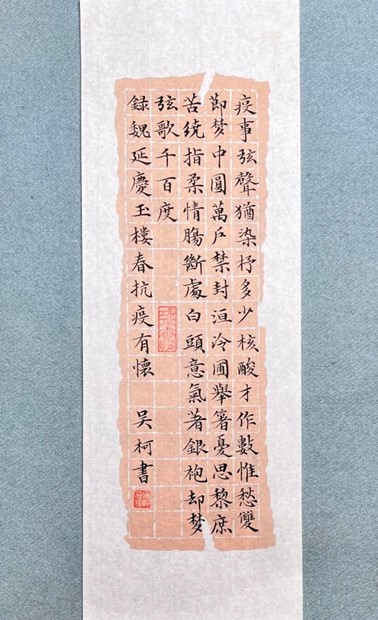 疫事弦聲猶染杼多少核酸才作數惟愁雙
即梦中圓萬戶禁封洹冷圃舉箸憂思黎庶
苦绕指柔情腸斷處白頭意氣著銀袍却梦
弦歌千百度
録魏延慶玉樓春抗疫有懷 吴柯書